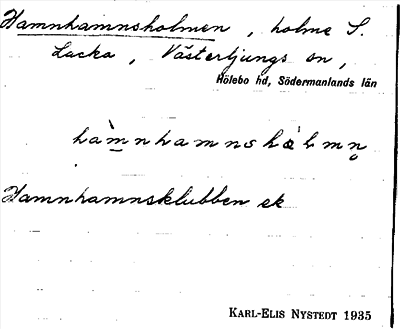 Hamnhamnsholmen, holme S.
Lacka, Västerljungs sn,
Hölebo hd, Södermanlands län
hàmnhamnshålmn̥
Hamnhamnsklubben ek
KARL-ELIS NYSTEDT 1935